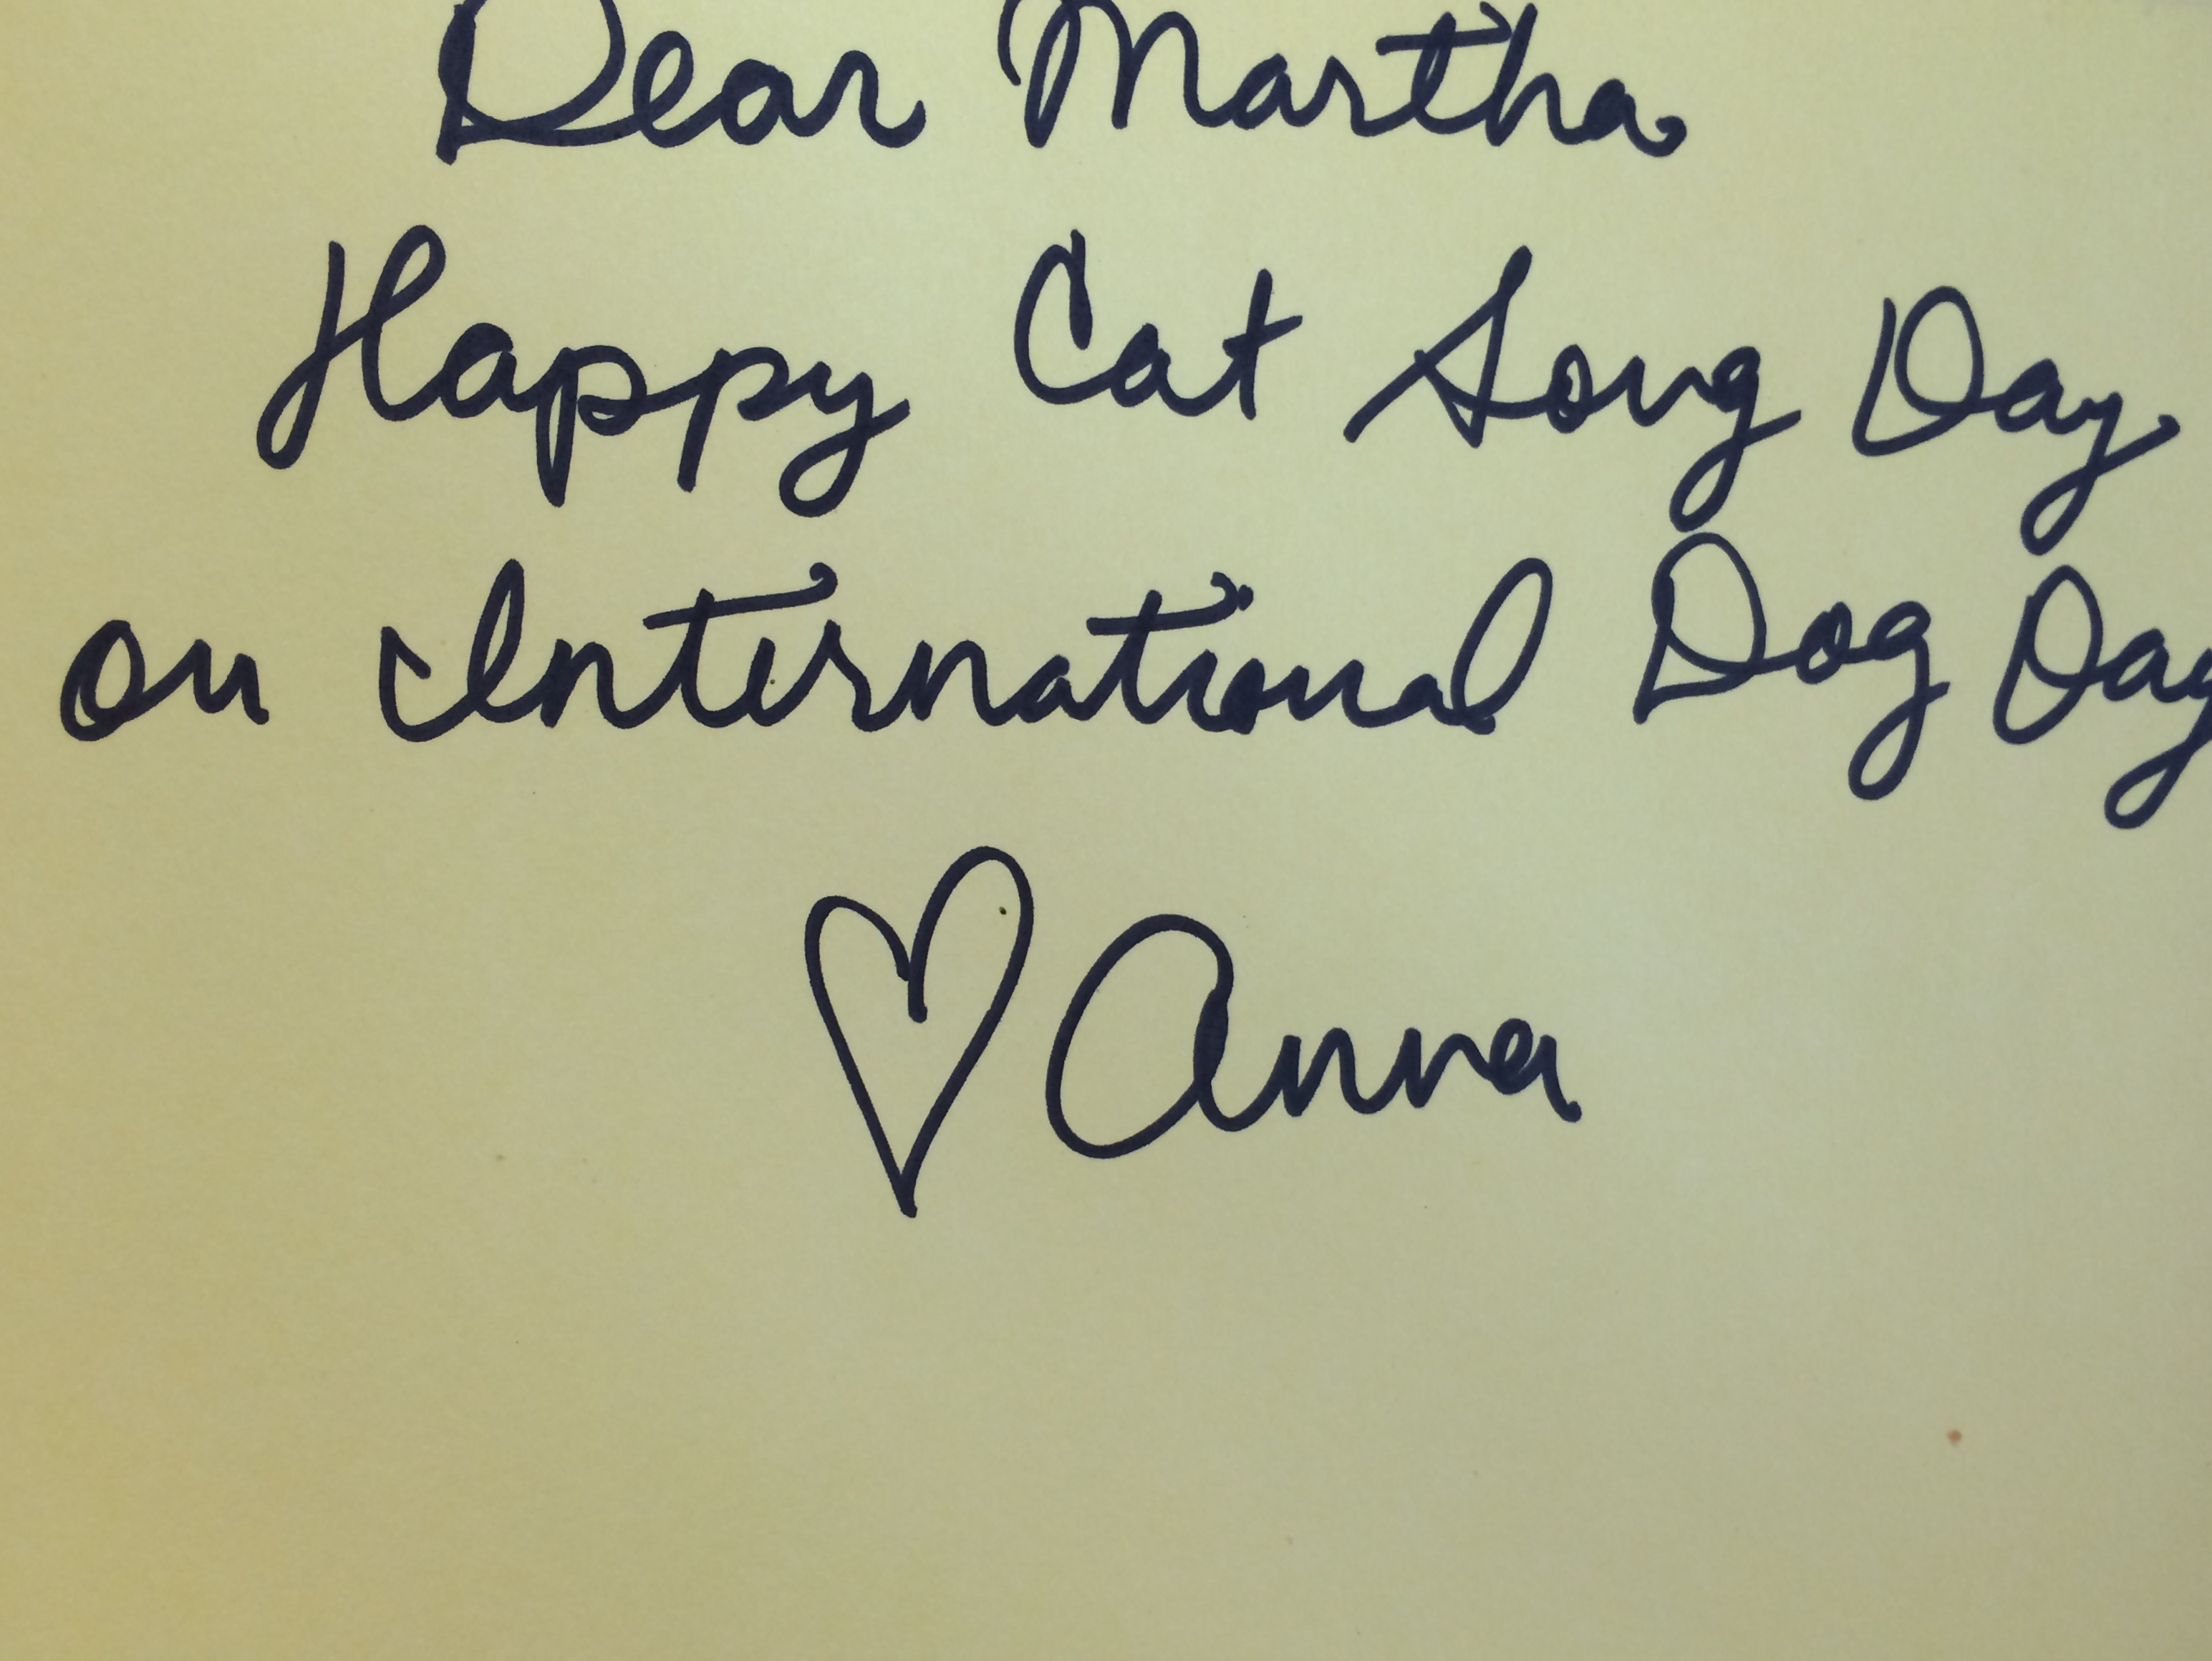 Dear Martha
Happy Cat Song Day
on International Dog Day
♡ Anna